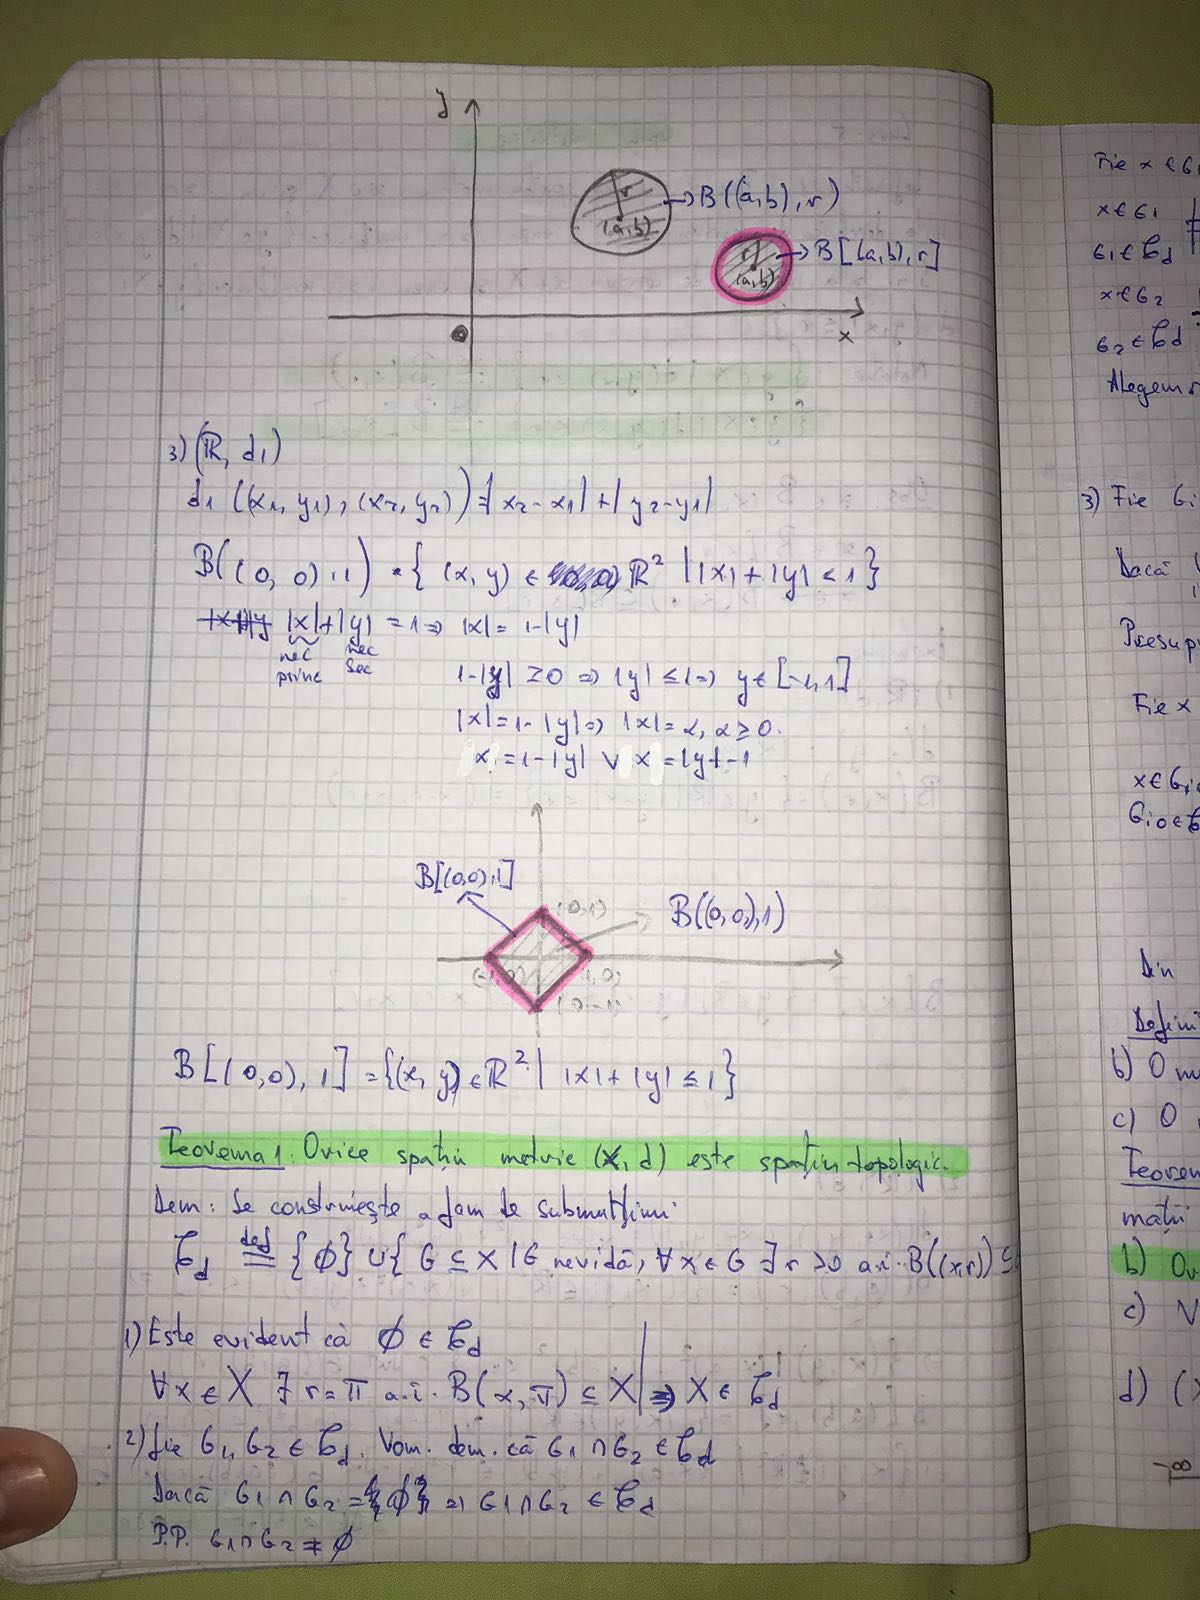 y
r
(a,b)
B((a,b),r)
r
(a,b)
B[(a,b),r]
0
x
3) (R, d1)
d1 ((x1, y1), (x2, y2)) = |x2-x1| + |y2-y1|
B((0,0),1) = { (x,y) ∈ R² | |x|+|y| < 1 }
|x|+|y| = 1 ⇒ |x| = 1-|y|
nec nec
princ sec
1-|y| ≥ 0 ⇒ |y| ≤ 1 ⇒ y ∈ [-1,1]
|x| = 1-|y| ⇒ |x| = α, α ≥ 0.
x = 1-|y| ∨ x = |y|-1
B[(0,0),1]
(0,1)
B((0,0),1)
(-1,0)
(1,0)
(0,-1)
B[(0,0),1] = {(x,y) ∈ R² | |x|+|y| ≤ 1}
Teorema 1: Orice spațiu metric (X, d) este spațiu topologic.
Dem: Se construiește o fam de submulțimi:
τd def= {∅} ∪ { G ⊆ X | G nevidă, ∀x ∈ G ∃ r > 0 a.î. B((x,r)) ⊆
1) Este evident că ∅ ∈ τd
∀x ∈ X ∃ r = π a.î. B(x, π) ⊆ X | ⇒ X ∈ τd
2) fie G1, G2 ∈ τd. Vom dem. că G1 ∩ G2 ∈ τd
Dacă G1 ∩ G2 = {∅} ⇒ G1 ∩ G2 ∈ τd
P.P. G1 ∩ G2 ≠ ∅
Fie x ∈ G1
x ∈ G1
G1 ∈ τd
x ∈ G2
G2 ∈ τd
Alegem r
3) Fie Gi
Dacă
Presup
Fie x
x ∈ Gi0
Gi0 ∈
Din
Defini
b) O m
c) O
Teorem
mații
b) O
c) V
d) (
-∞